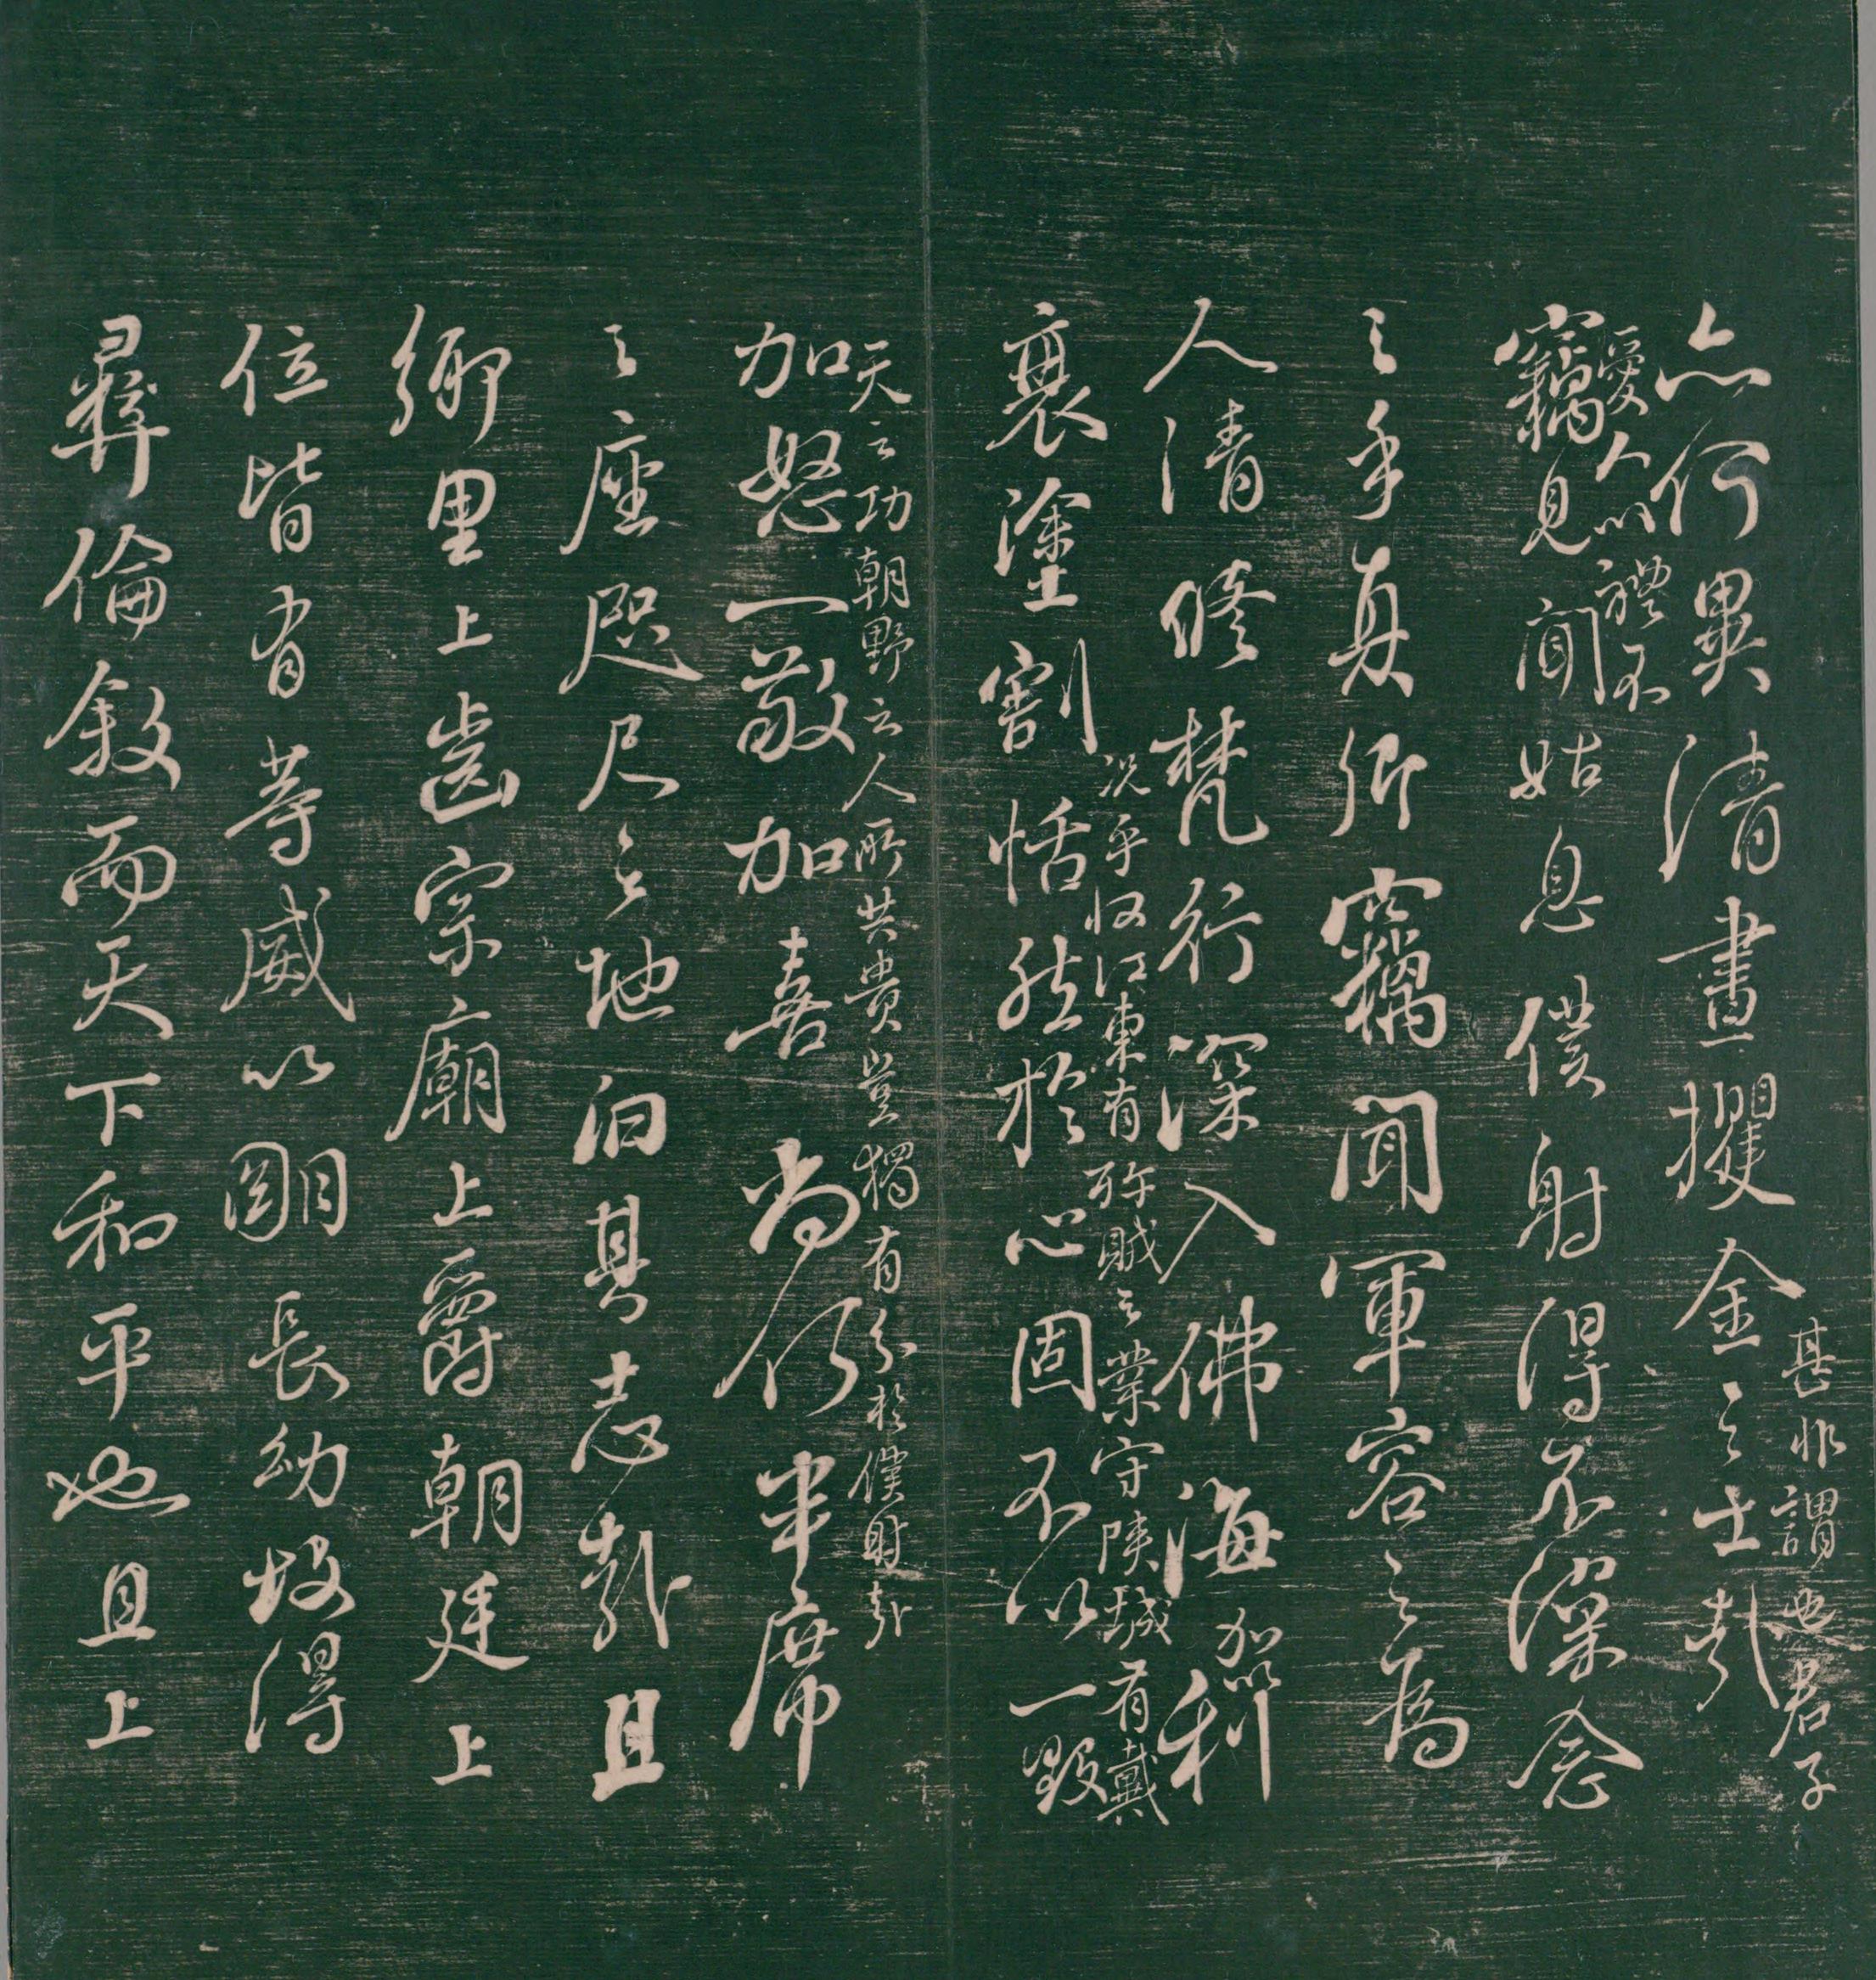 亦何異清晝攫金之士哉
甚非謂也君子
愛人以禮不
竊見聞姑息僕射得不深念
之乎真卿竊聞軍容之為
人清修梵行深入佛海
況乎收江東有殄賊之業守陝城有戴
裏塗割恬然於心固不以一毀
天之功朝野之人所共貴豈獨有分於僕射哉
加怒一敬加喜尚何半席
之座咫尺之地汩其志哉且
鄉里上齒宗廟上爵朝廷上
位皆有等威以明長幼故得
彝倫敘而天下和平也且上